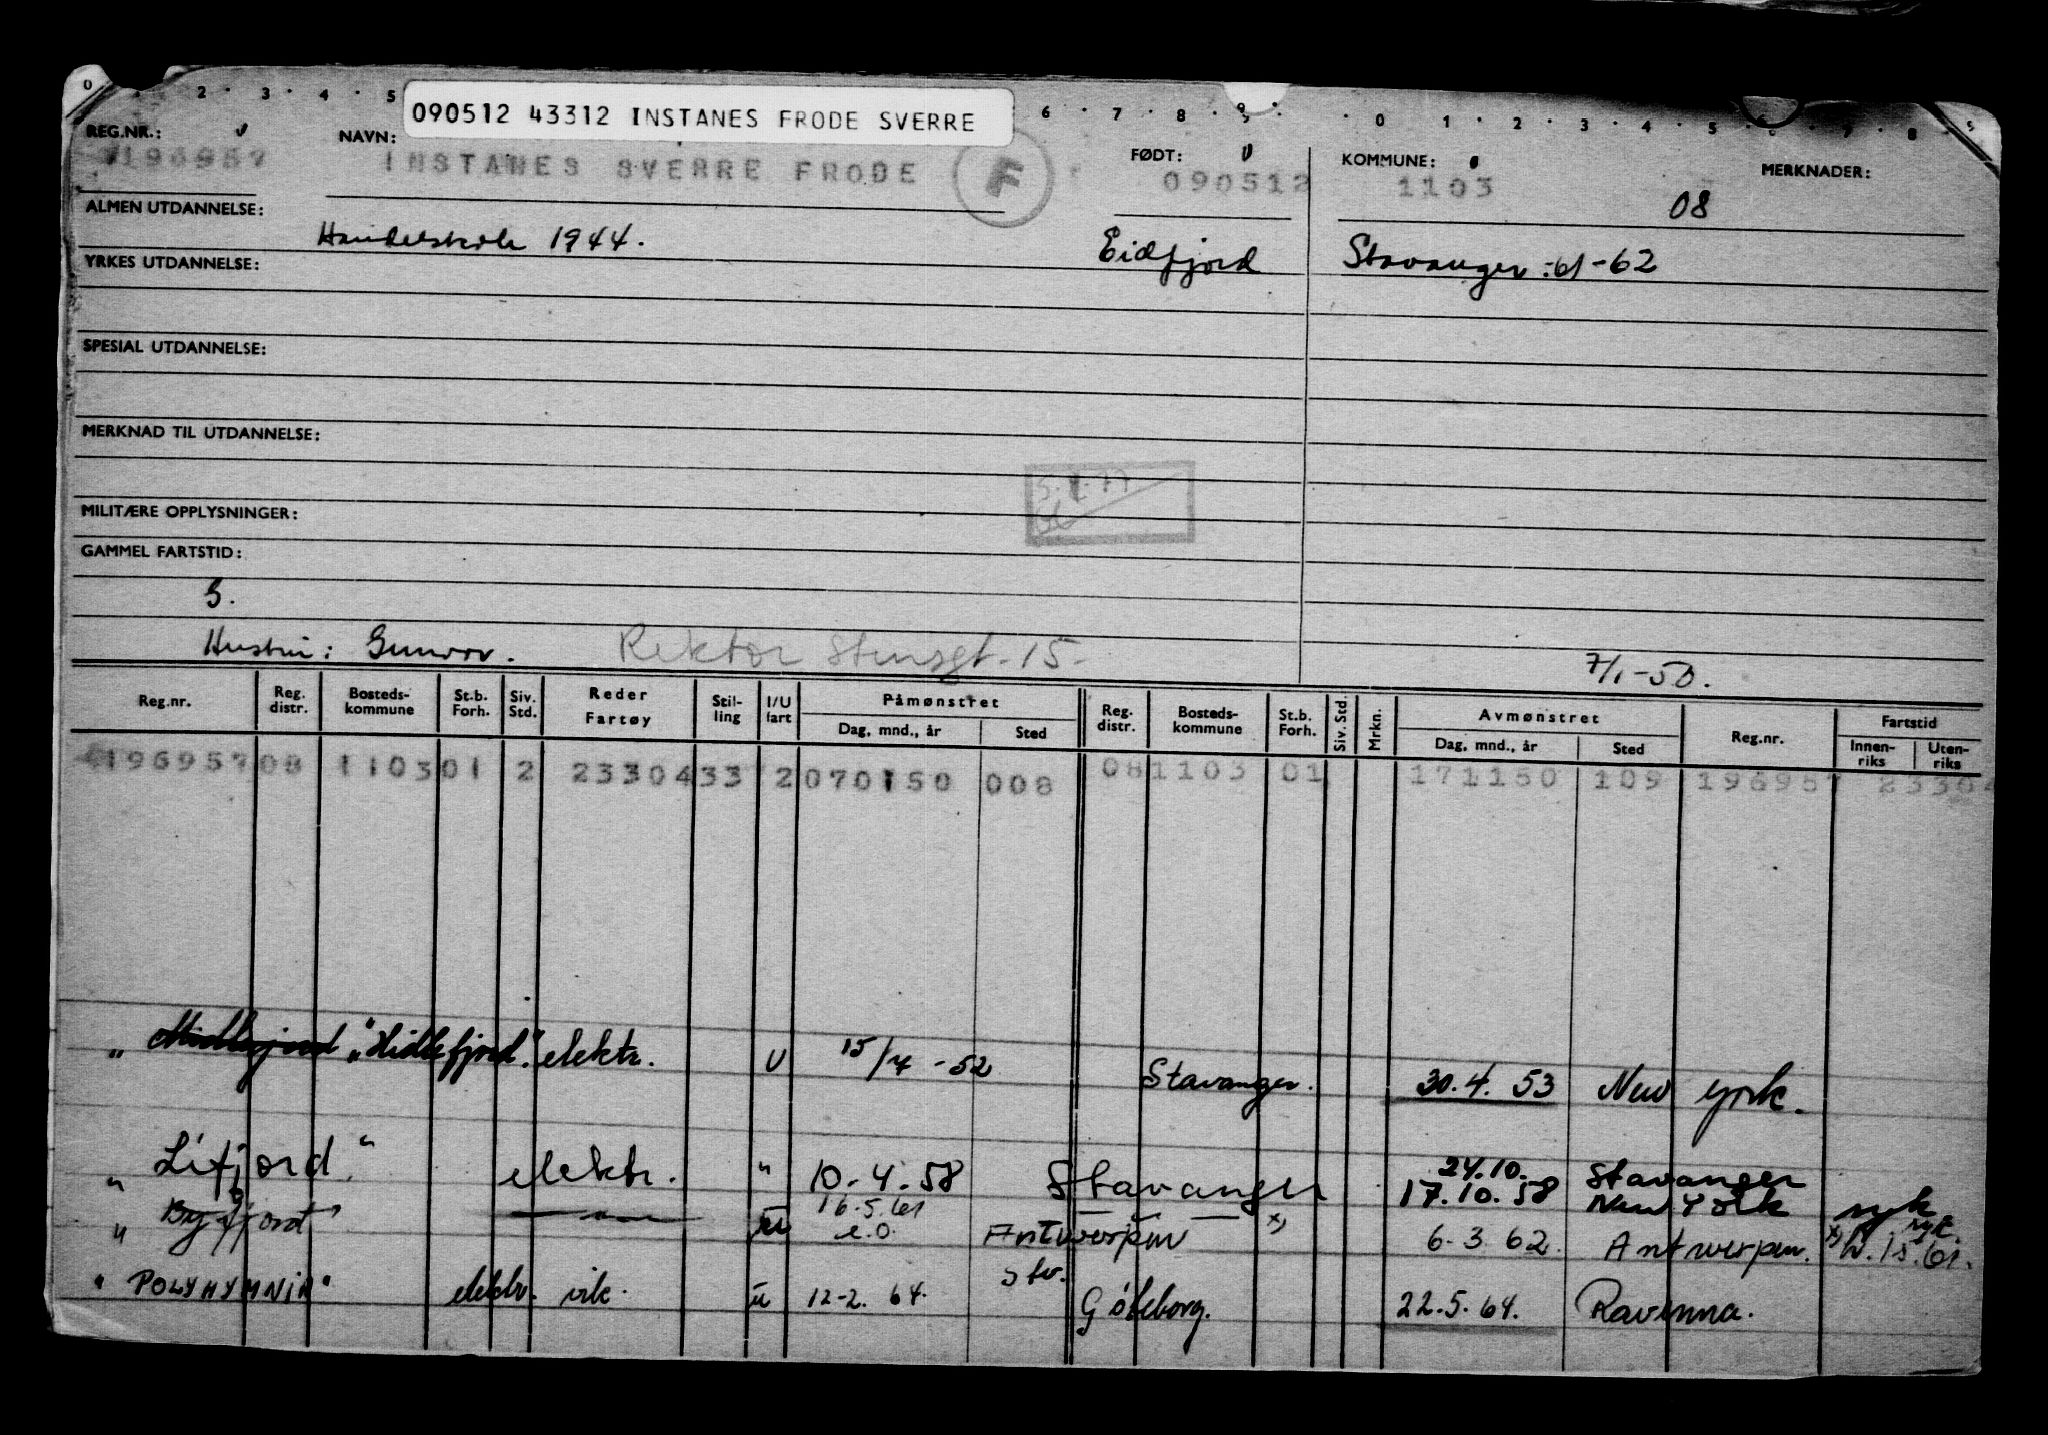 0 2 · 3 · 4 · 5 6 · 7 · 8 · 9 · 0 1 · 2 · 3 · 4 · 5 · 6 · 7 · 8 · 5
090512 43312 INSTANES FRODE SVERRE
REG.NR.: NAVN: FØDT: KOMMUNE: MERKNADER:
196957 INSTANES SVERRE FRODE F 090512 1103
08
ALMEN UTDANNELSE:
Handelskole 1944. Eidfjord Stavanger :61-62
YRKES UTDANNELSE:
SPESIAL UTDANNELSE:
MERKNAD TIL UTDANNELSE:
MILITÆRE OPPLYSNINGER:
GAMMEL FARTSTID:
3.
Hustru: Gunvor. Rektor Stensgt. 15- 7/1-50.
Reg.nr. Reg. distr. Bosteds-kommune St.b. Forh. Siv. Std. Reder Fartøy Stil-ling I/U fart Påmønstret Dag, mnd., år Sted Reg. distr. Bosteds-kommune St.b. Forh. Siv. Std. Mrkn. Avmønstret Dag, mnd., år Sted Reg.nr. Fartstid Innen-riks Uten-riks
196957 08 1103 01 2 23304 33 2 070150 008 08 1103 01 171150 109 196957 2330
" "Hidlefjord". elektr. U 15/7 -52 Stavanger. 30.4.53 New York.
24.10. Stavanger
" Lifjord." elektr. " 10.4.58 Stavanger 17.10.58 New York syk
16.5.61 syk.
" Bygfjord" u e.o. Antwerpen x) 6.3.62. Antwerpen. x)
Stv.
" POLYHYMNIA" elektr. vik. u 12-2.64. Göteborg. 22.5.64. Ravenna.